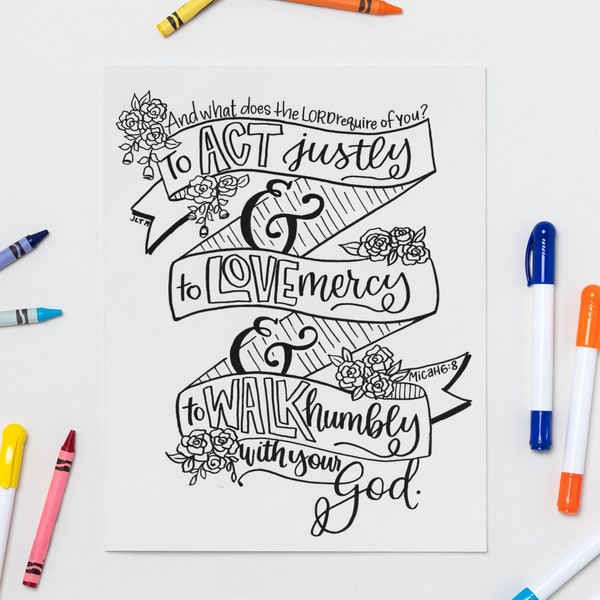 And what does the LORD require of you?
to ACT justly
JLT M
&
to LOVE mercy
&
Micah 6:8
to WALK humbly
with your
God.